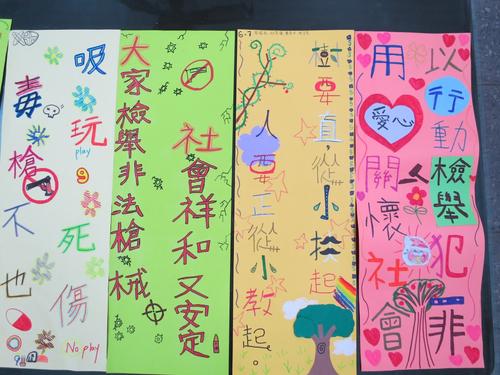 吸
毒
玩
play
槍
9
不
死
也
傷
No play
社會祥和又安定
大家檢舉非法槍械
6-7
樹要直,從小扶起
人要正從小教起。
以行動檢舉犯罪
用愛心關懷社會